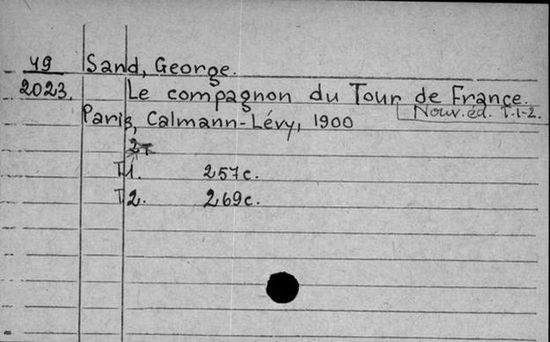 49 Sand, George.
2023. Le compagnon du Tour de France.
Nouv. éd. T. 1-2.
Paris, Calmann-Lévy, 1900
2т
T 1. 257c.
T 2. 269c.